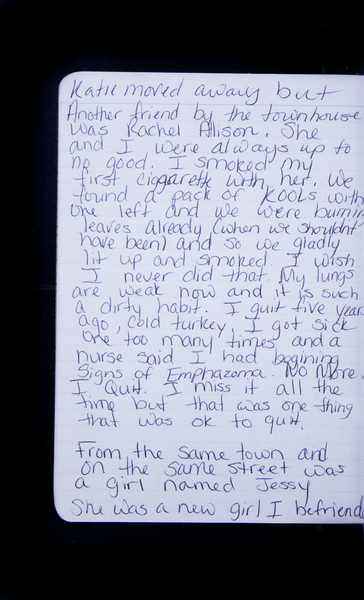 Katie moved away but
Another friend by the townhouse
was Rachel Allison. She
and I were always up to
no good. I smoked my
first ciggarette with her. We
found a pack of KOOLs with
one left and we were burnin
leaves already (when we shouldn't
have been) and so we gladly
lit up and smoked. I wish
I never did that. My lungs
are weak now and it is such
a dirty habit. I quit five year
ago, cold turkey. I got sick
one too many times and a
nurse said I had begining
signs of Emphazoma. No More.
I Quit. I miss it all the
time but that was one thing
that was ok to quit.
From the same town and
on the same street was
a girl named Jessy
She was a new girl I befriend